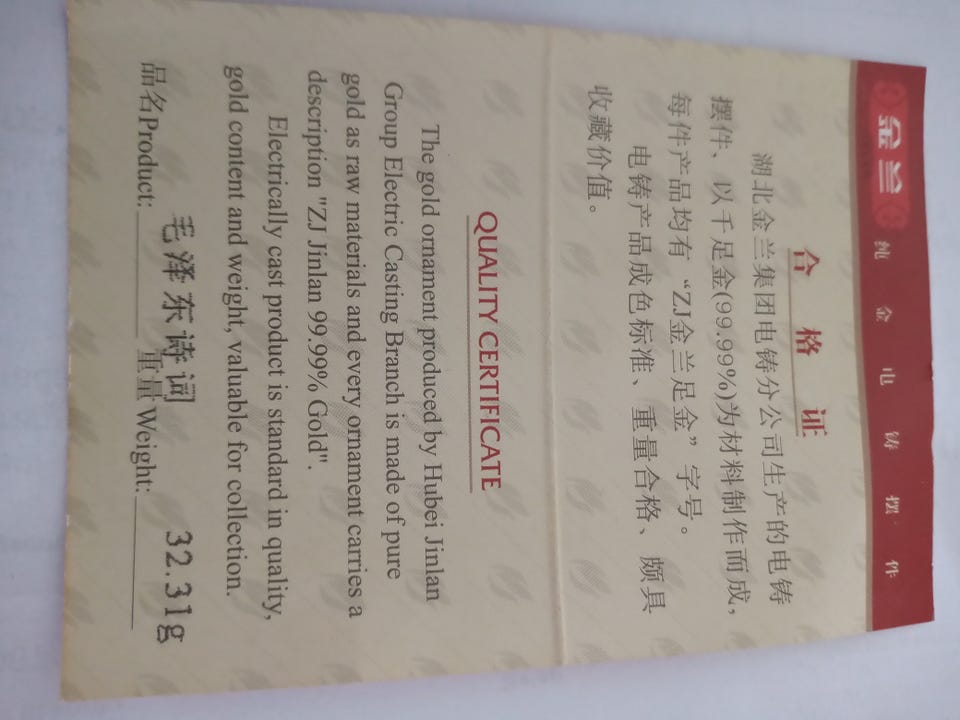 金兰 纯金电铸摆件
合格证
湖北金兰集团电铸分公司生产的电铸
摆件、以千足金(99.99%)为材料制作而成,
每件产品均有“ZJ金兰足金”字号。
电铸产品成色标准、重量合格、颇具
收藏价值。
QUALITY CERTIFICATE
The gold ornament produced by Hubei Jinlan
Group Electric Casting Branch is made of pure
gold as raw materials and every ornament carries a
description "ZJ Jinlan 99.99% Gold".
Electrically cast product is standard in quality,
gold content and weight, valuable for collection.
品名Product: 毛泽东诗词 重量Weight: 32.31g